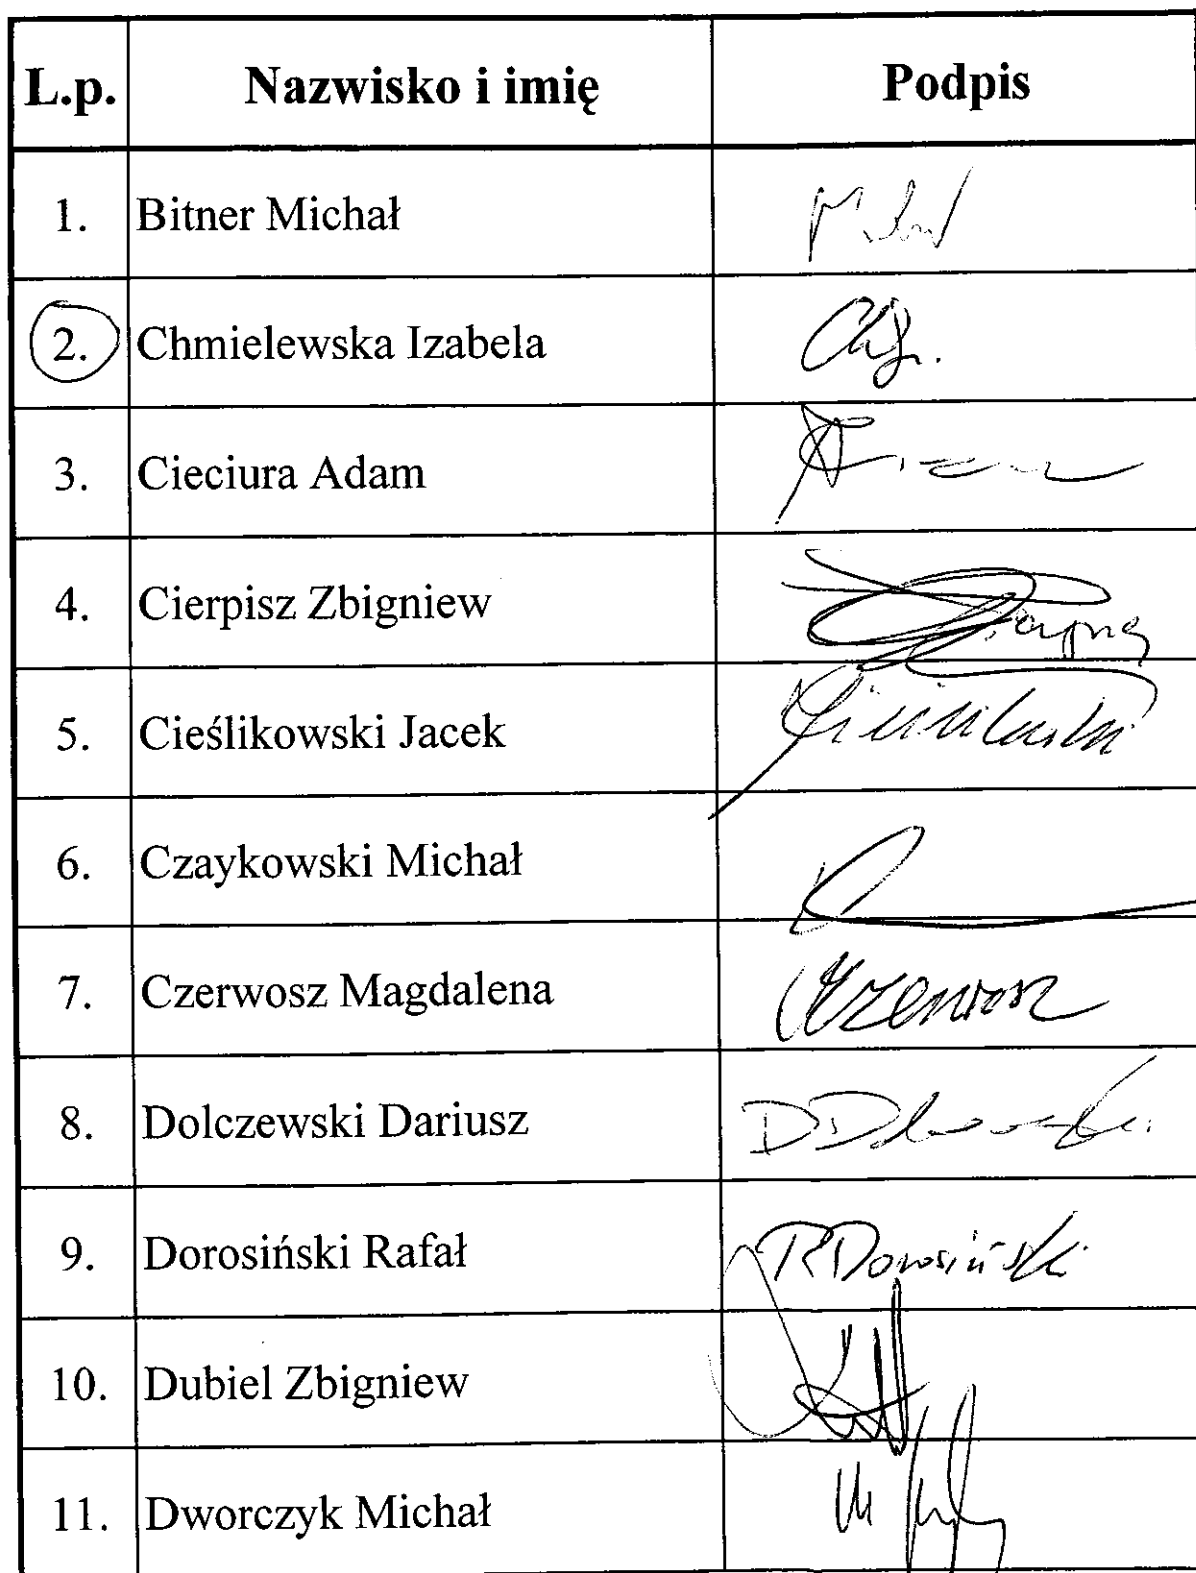 L.p. Nazwisko i imię Podpis
1. Bitner Michał
2. Chmielewska Izabela
3. Cieciura Adam
4. Cierpisz Zbigniew
5. Cieślikowski Jacek
6. Czaykowski Michał
7. Czerwosz Magdalena Czerwosz
8. Dolczewski Dariusz
9. Dorosiński Rafał RDorosiński
10. Dubiel Zbigniew
11. Dworczyk Michał